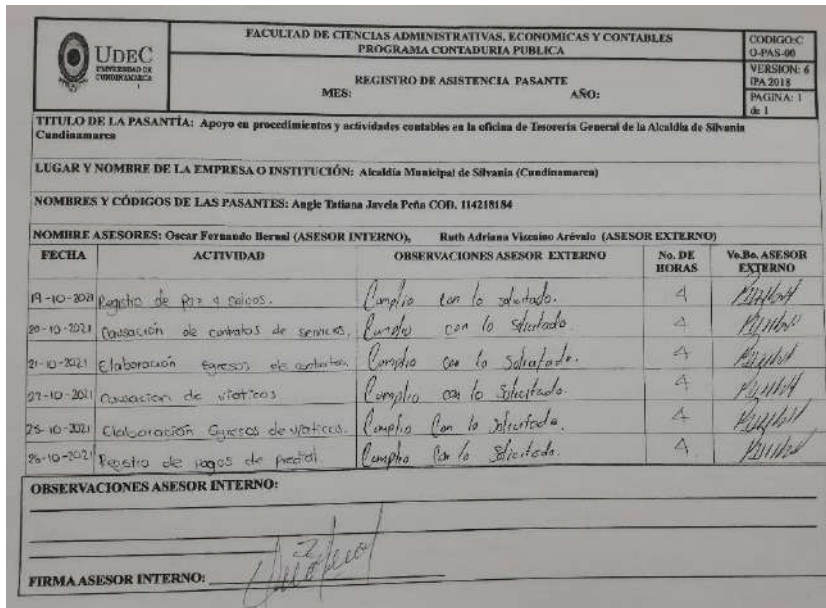 UDEC
UNIVERSIDAD DE
CUNDINAMARCA
FACULTAD DE CIENCIAS ADMINISTRATIVAS, ECONOMICAS Y CONTABLES
PROGRAMA CONTADURIA PUBLICA
REGISTRO DE ASISTENCIA PASANTE
MES: AÑO:
CODIGO:C
O-PAS-00
VERSION: 6
IPA 2018
PAGINA: 1
de 1
TITULO DE LA PASANTÍA: Apoyo en procedimientos y actividades contables en la oficina de Tesorería General de la Alcaldía de Silvania
Cundinamarca
LUGAR Y NOMBRE DE LA EMPRESA O INSTITUCIÓN: Alcaldía Municipal de Silvania (Cundinamarca)
NOMBRES Y CÓDIGOS DE LAS PASANTES: Angie Tatiana Javela Peña COD. 114218184
NOMBRE ASESORES: Oscar Fernando Bernal (ASESOR INTERNO), Ruth Adriana Vizcaino Arévalo (ASESOR EXTERNO)
FECHA ACTIVIDAD OBSERVACIONES ASESOR EXTERNO No. DE HORAS Vo.Bo. ASESOR EXTERNO
19-10-2021 Registro de paz y salvos. Cumplio con lo solicitado. 4
20-10-2021 Causación de contratos de servicios. Cumplio con lo solicitado 4
21-10-2021 Elaboración egresos de contratos. Cumplio con lo Solicitado. 4
-10-2021 Causacion de viaticos Cumplio con lo Solicitado. 4
25-10-2021 Elaboración Egresos de viaticos. Cumplio Con lo Solicitado. 4
-10-2021 Registro de pagos de predial. Cumplio Con lo Solicitado. 4
OBSERVACIONES ASESOR INTERNO:
FIRMA ASESOR INTERNO: